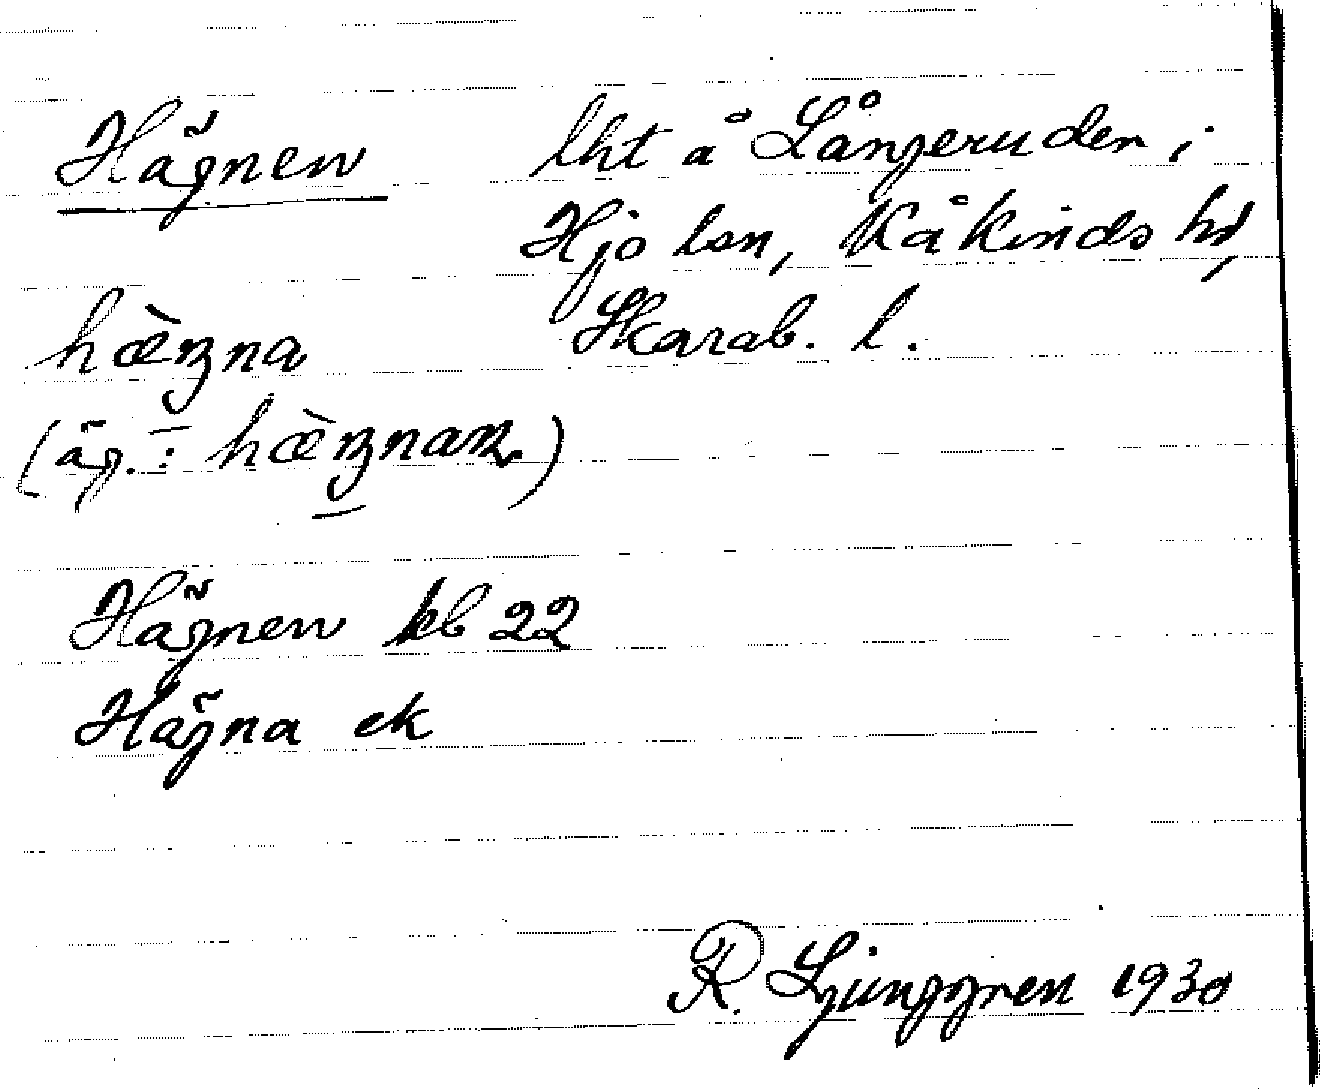 Hägnen lht å Långeruden i
Hjo lsn, Kåkinds hd,
hæ̀ŋna Skarab. l.
(äg.: hæ̀ŋnaɴ.)
Hägnen kb 22
Hägna ek
R. Ljunggren 1930